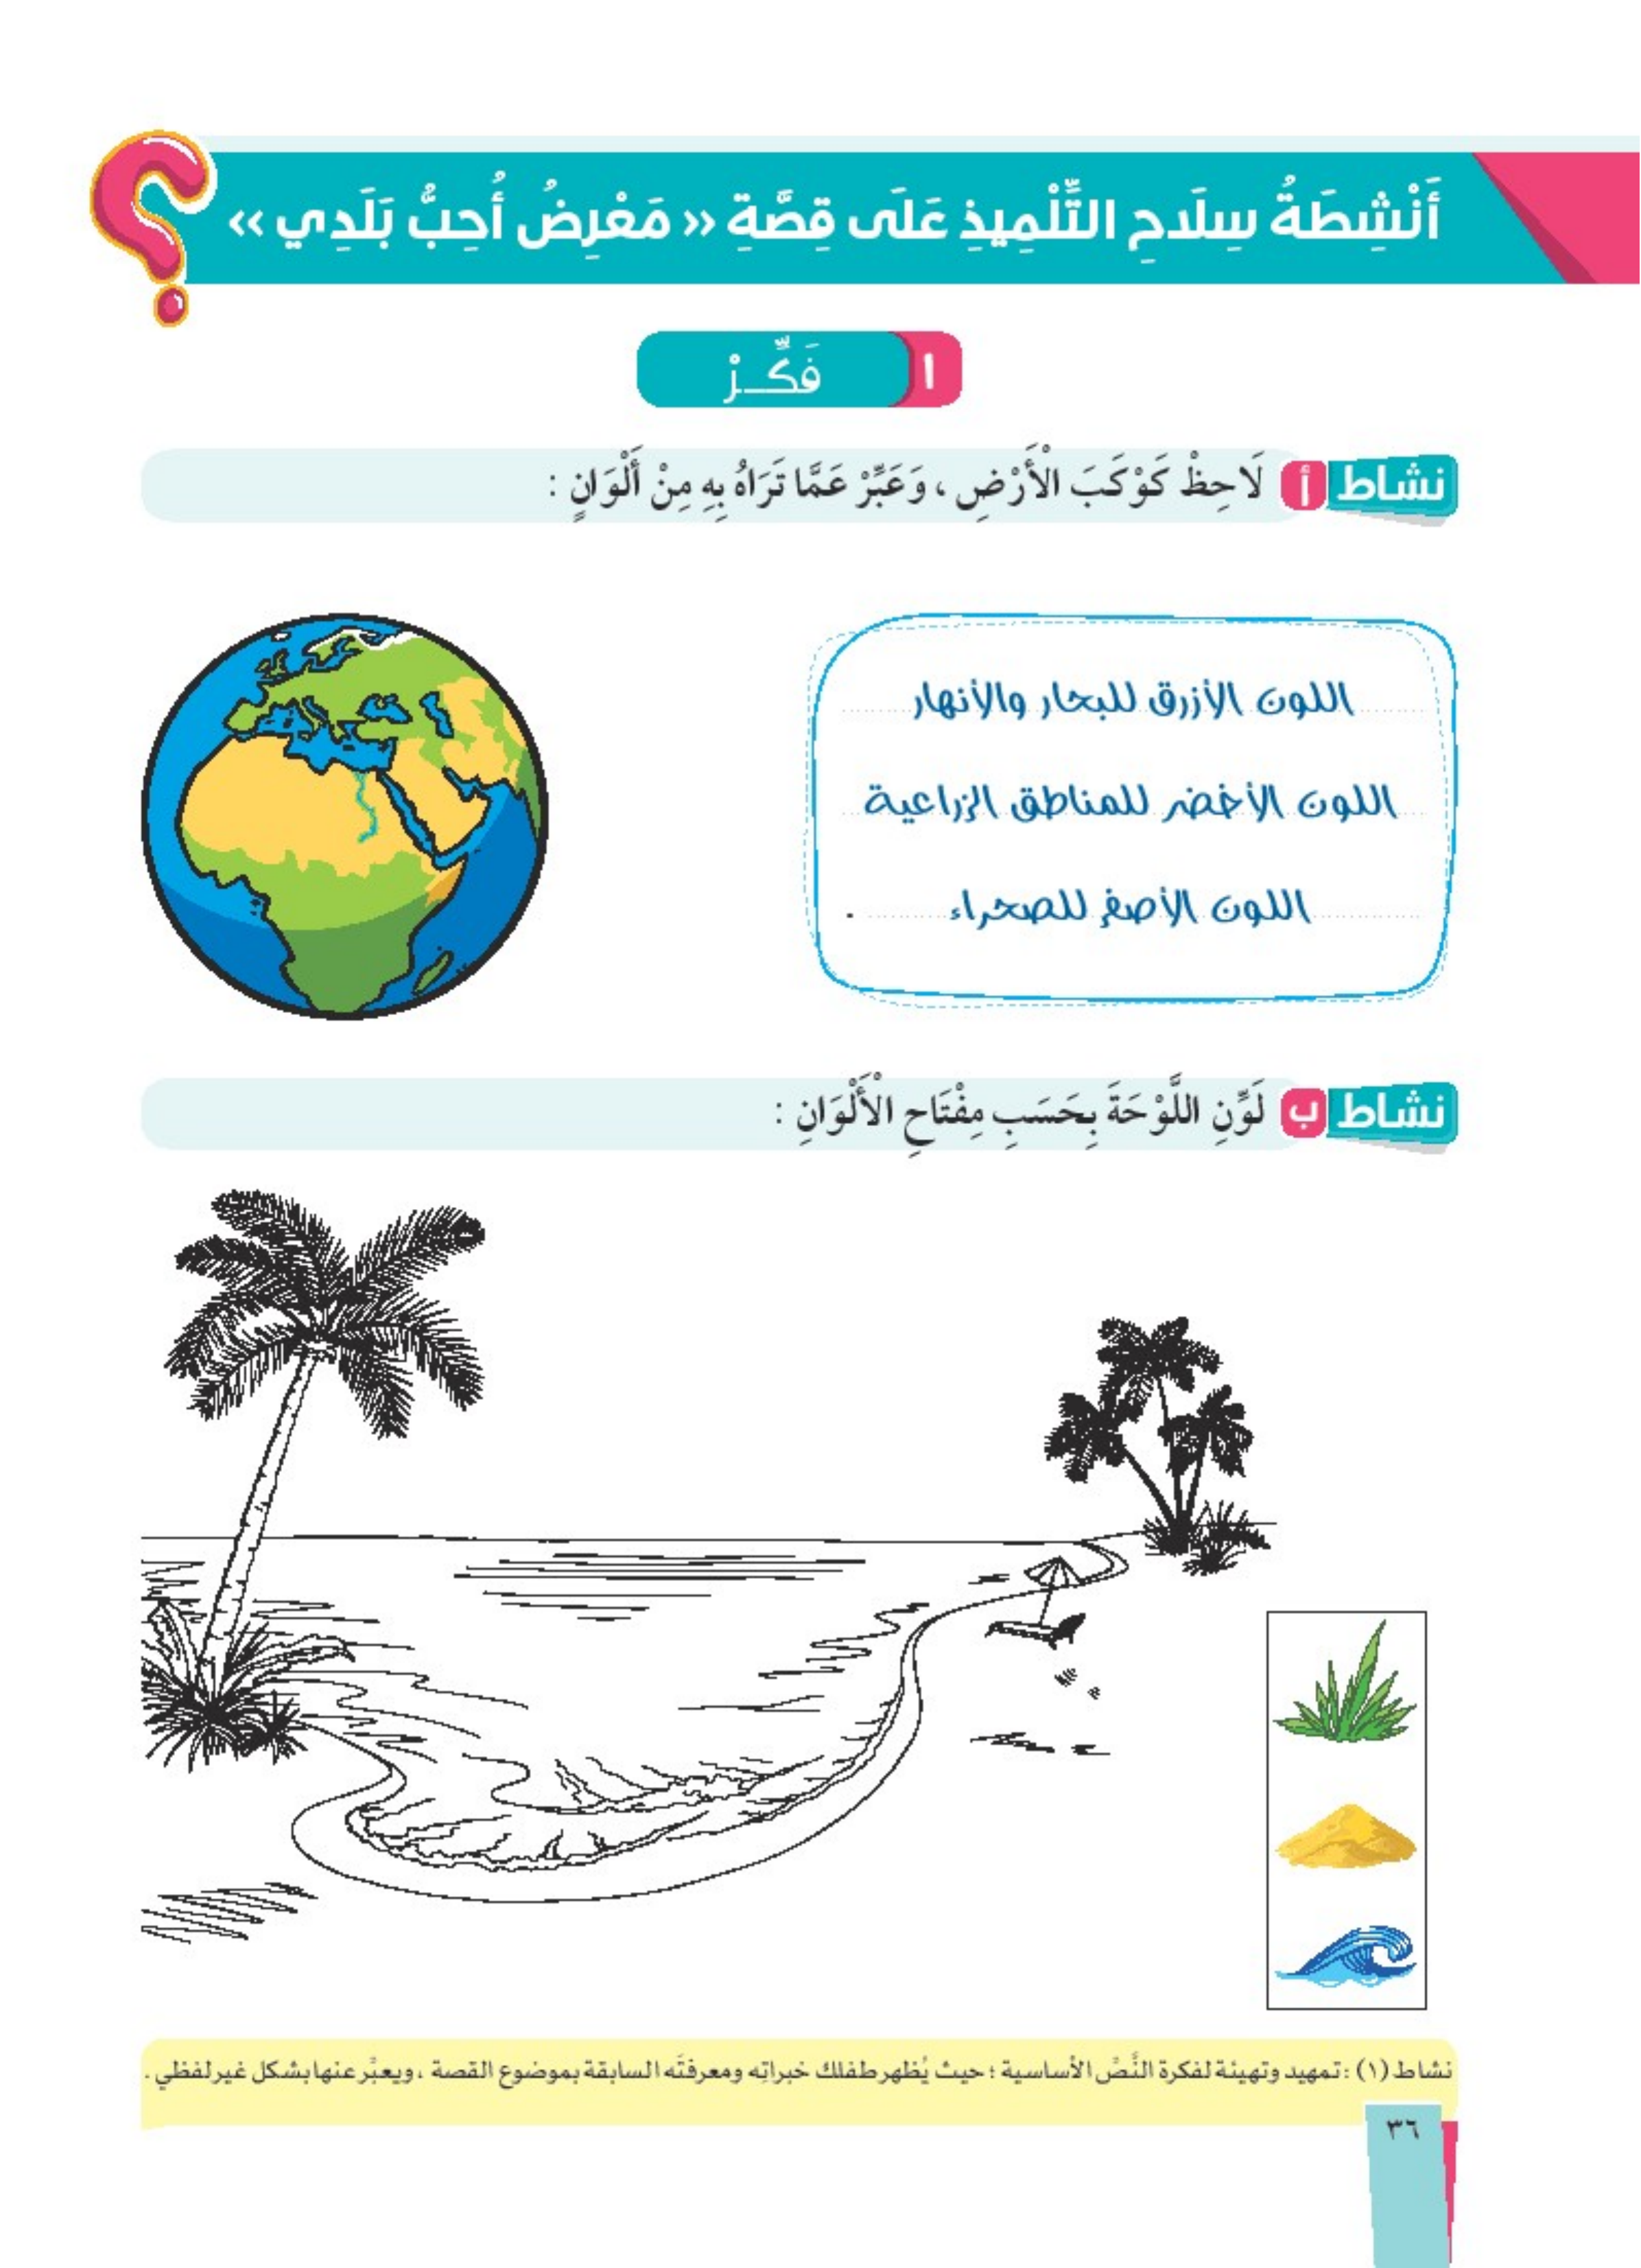 أَنْشِطَةُ سِلَاحِ التِّلْمِيذِ عَلَى قِصَّةِ « مَعْرِضُ أُحِبُّ بَلَدِي »
١ فَكِّـرْ
نشاط أ لَاحِظْ كَوْكَبَ الْأَرْضِ ، وَعَبِّرْ عَمَّا تَرَاهُ بِهِ مِنْ أَلْوَانٍ :
اللون الأزرق للبحار والأنهار
اللون الأخضر للمناطق الزراعية
اللون الأصفر للصحراء .
نشاط ب لَوِّنِ اللَّوْحَةَ بِحَسَبِ مِفْتَاحِ الْأَلْوَانِ :
نشاط (١) : تمهيد وتهيئة لفكرة النَّصِّ الأساسية ؛ حيث يُظهر طفلك خبراتِه ومعرفتَه السابقة بموضوع القصة ، ويعبِّر عنها بشكل غير لفظي .
٣٦